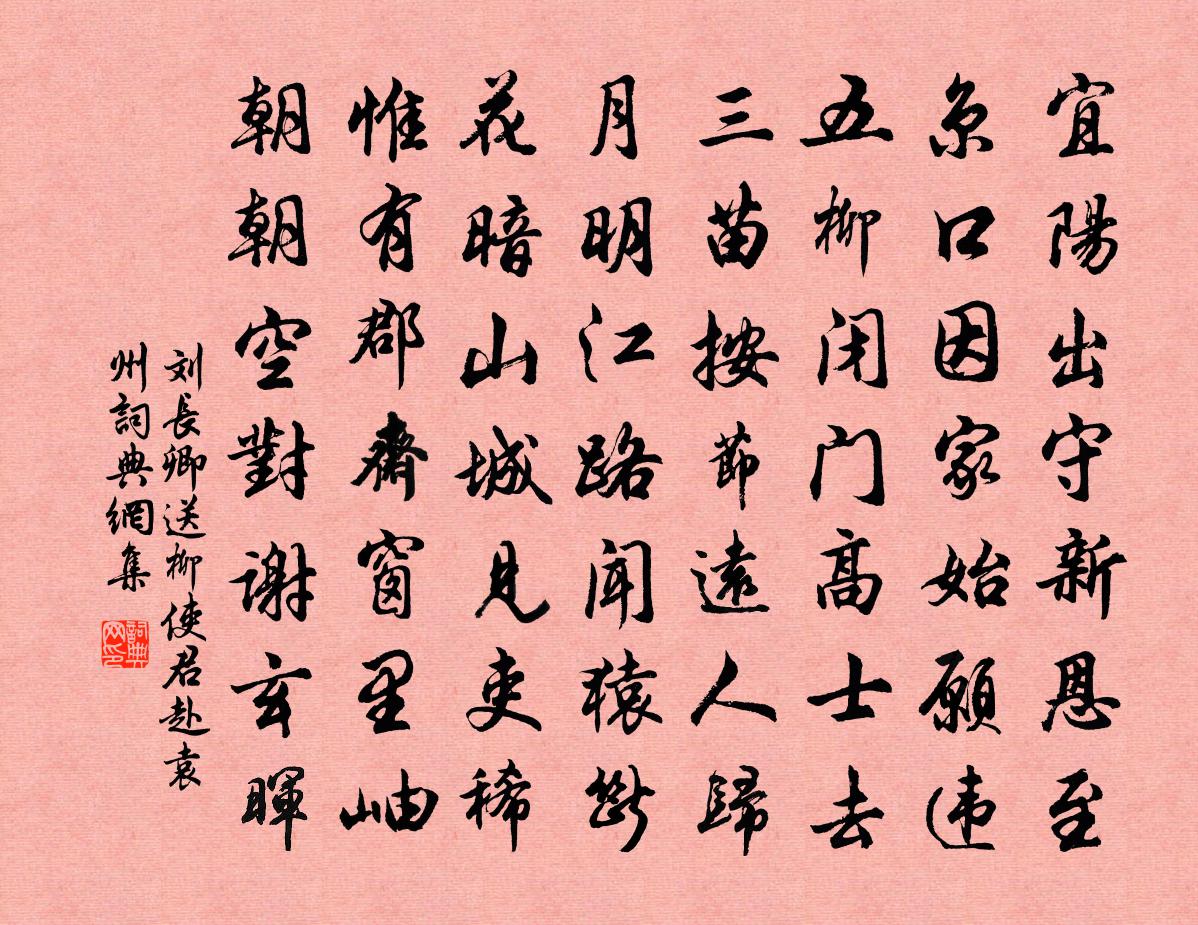 宜陽出守新恩至
京口因家始願违
五柳闭门高士去
三苗按節遠人歸
月明江路闻猿斷
花暗山城見吏稀
惟有郡齋窗里岫
朝朝空對谢玄暉
刘長卿送柳使君赴袁
州詞典網集
詞典网印